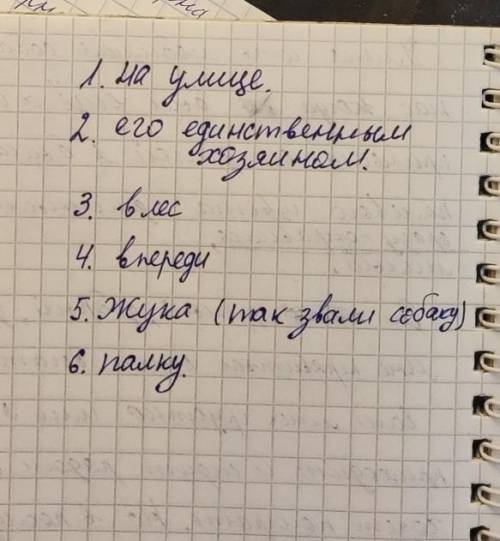 1. на улице.
2. его единственным
хозяином.
3. в лес
4. впереди
5. Жука (так звали собаку)
6. палку.